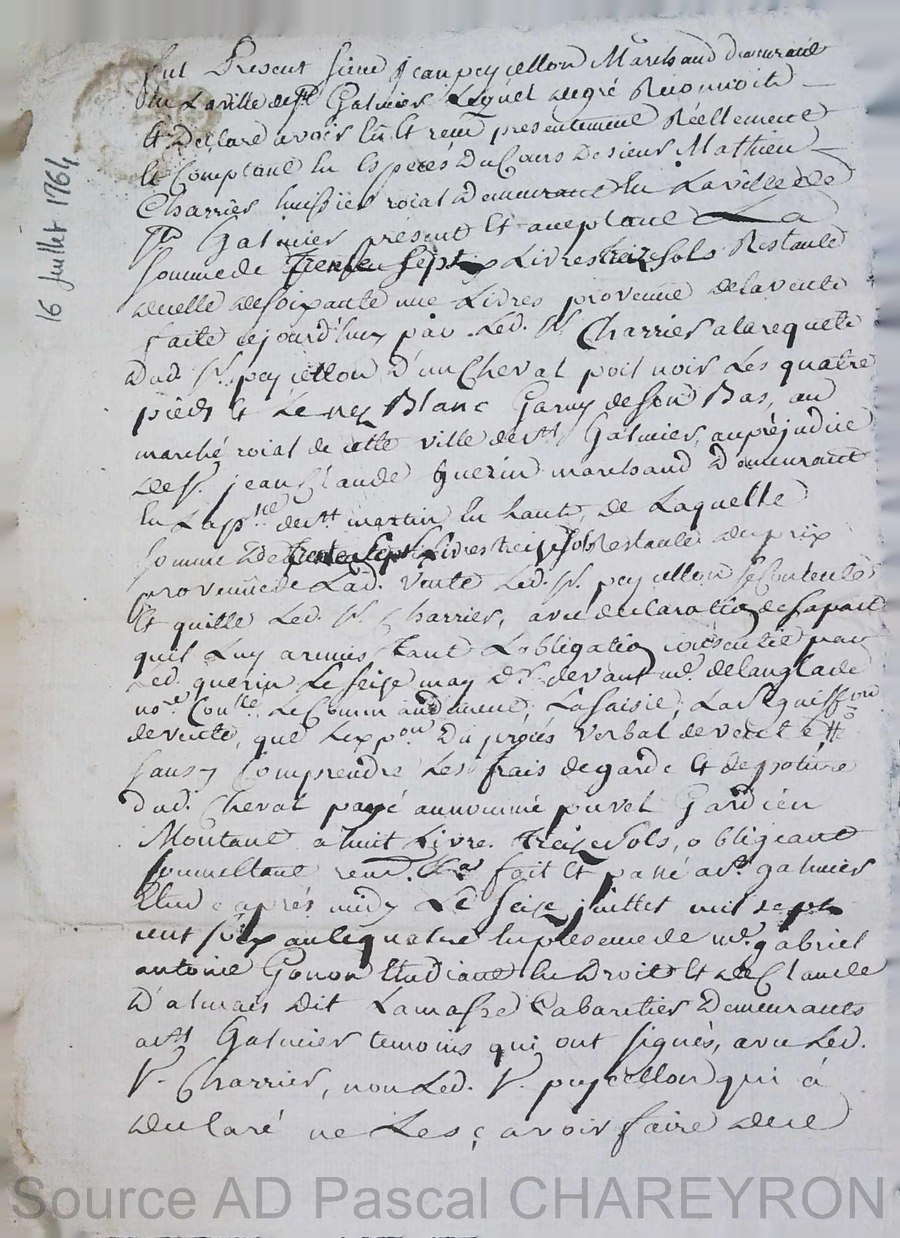 16 Juillet 1764
fut Present sieur Jean peycellon Marchand demeurant
En La ville de st. Galmier Lequel de gré Reconnoit
Et Déclare avoir Eu Et receu presentement Réellement
Et Comptant En Especes Du Cours De sieur Mathieu
Charrier huissier roial Demeurant En La ville de
st Galmier present Et aceptant La
somme de Trente sept Livres treize sols Restante
de celle de soixante une Livres provenue de la vente
faite cejourd'huy par Led. sr. Charrier a la requete
Dud. sr. peycellon d'un Cheval poil noir Les quatre
pieds Et Le nez Blanc Garny de son Bas, au
marché roial de cette ville de st Galmier, au préjudice
de sr. jean Claude Guerin marchand Demeurant
En La psse de st martin En haut, de Laquelle
somme De trente sept Livres treize sols Restante du prix
provenu de Lad. vente Led. sr. peycellon se Contente
Et quitte Led. sr. Charrier, avec declaration de sa part
qu'il Luy a remis tant L'obligation consentie par
Led. guerin Le seize may Dr. devant me. delanglade
nore. Le Commandement, La saisie, La Requisson
de vente, que L'expon. Du procés verbal de vente
sans y Comprendre Les frais de garde Et de
dud. Cheval payé au nommé Gardien
Montant a huit Livre Treize sols, obligeant
soumettant renon. fait Et passé a st. galmier
Etude aprés midy Le seize juillet mil sept
cent soixante quatre En presence de me. gabriel
antoine Gonon Etudiant En Droit Et de Claude
Dalmais Dit Lamasse Cabaretier Demeurants
a st Galmier temoins qui ont signés, avec Led.
sr. Charrier, non Led. sr. peycellon qui a
declaré ne Le sçavoir faire de ce
Source AD Pascal CHAREYRON